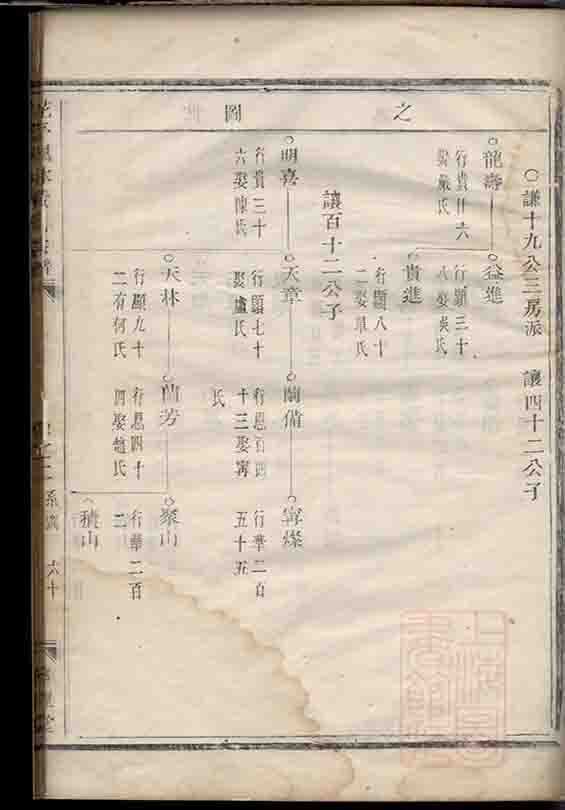 之
圖
○謙十九公三房派　讓四十二公子
○龍壽
行貴廿六
娶嚴氏
○益進
行顯三十
娶吳氏
貴進
行顯八十
二娶
氏
讓百十二公子
○明喜
行貴三十
六娶陳氏
○天章
行顯七十
娶盧氏
蘭備
行恩百四
十三娶甯
氏
○甯燦
行華二百
五十五
○天林
行顯九十
二有何氏
○蘭芳
行恩四十
娶趙氏
○聚山
行華二百
二
○積山
系圖
六十